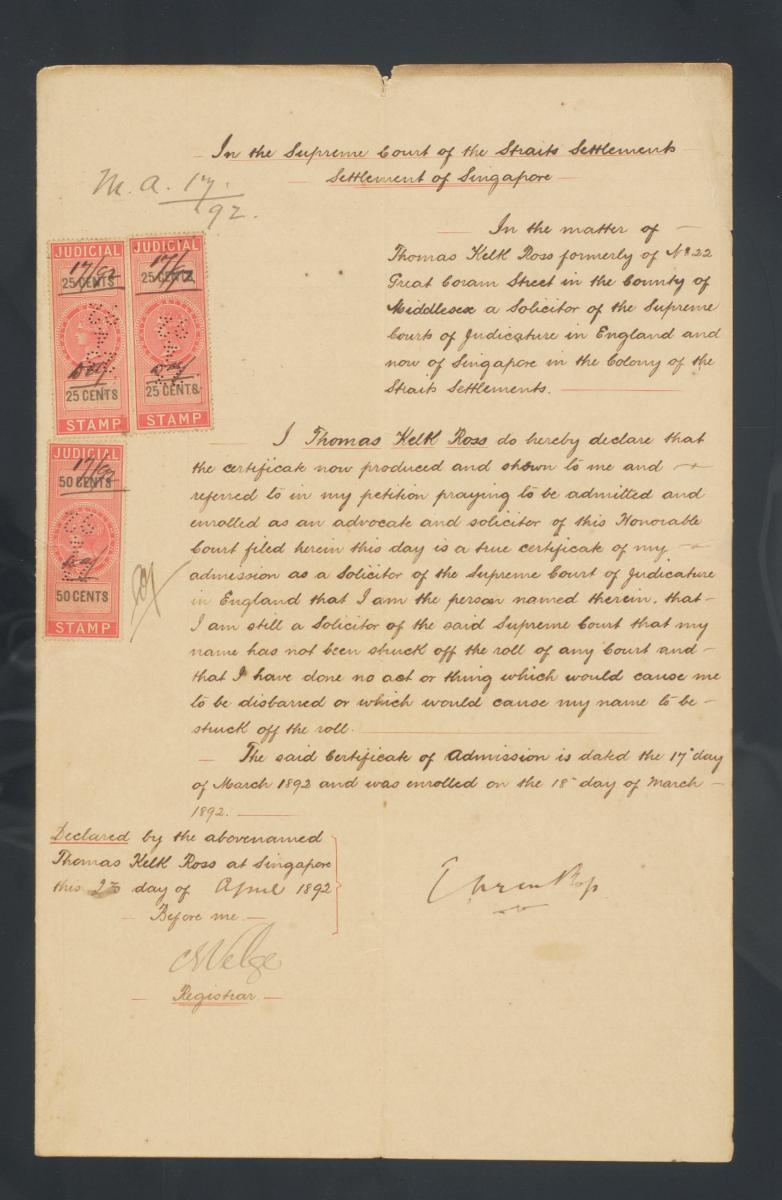 In the Supreme Court of the Straits Settlements
Settlement of Singapore
M. A. 17/92.
In the matter of
Thomas Kelk Ross formerly of No. 22
Great Coram Street in the County of
Middlesex a Solicitor of the Supreme
Courts of Judicature in England and
now of Singapore in the Colony of the
Straits Settlements.
JUDICIAL
17/92
25 CENTS
25 CENTS
STAMP
JUDICIAL
17/92
25 CENTS
25 CENTS
STAMP
JUDICIAL
17/92
50 CENTS
50 CENTS
STAMP
I Thomas Kelk Ross do hereby declare that
the certificate now produced and shown to me and
referred to in my petition praying to be admitted and
enrolled as an advocate and solicitor of this Honorable
Court filed herein this day is a true certificate of my
admission as a Solicitor of the Supreme Court of Judicature
in England that I am the person named therein. that
I am still a Solicitor of the said Supreme Court that my
name has not been struck off the roll of any Court and
that I have done no act or thing which would cause me
to be disbarred or which would cause my name to be
struck off the roll.
The said Certificate of Admission is dated the 17 day
of March 1892 and was enrolled on the 18 day of March
1892.
Declared by the abovenamed
Thomas Kelk Ross at Singapore
this day of April 1892
Before me
Velge
Registrar
Ross